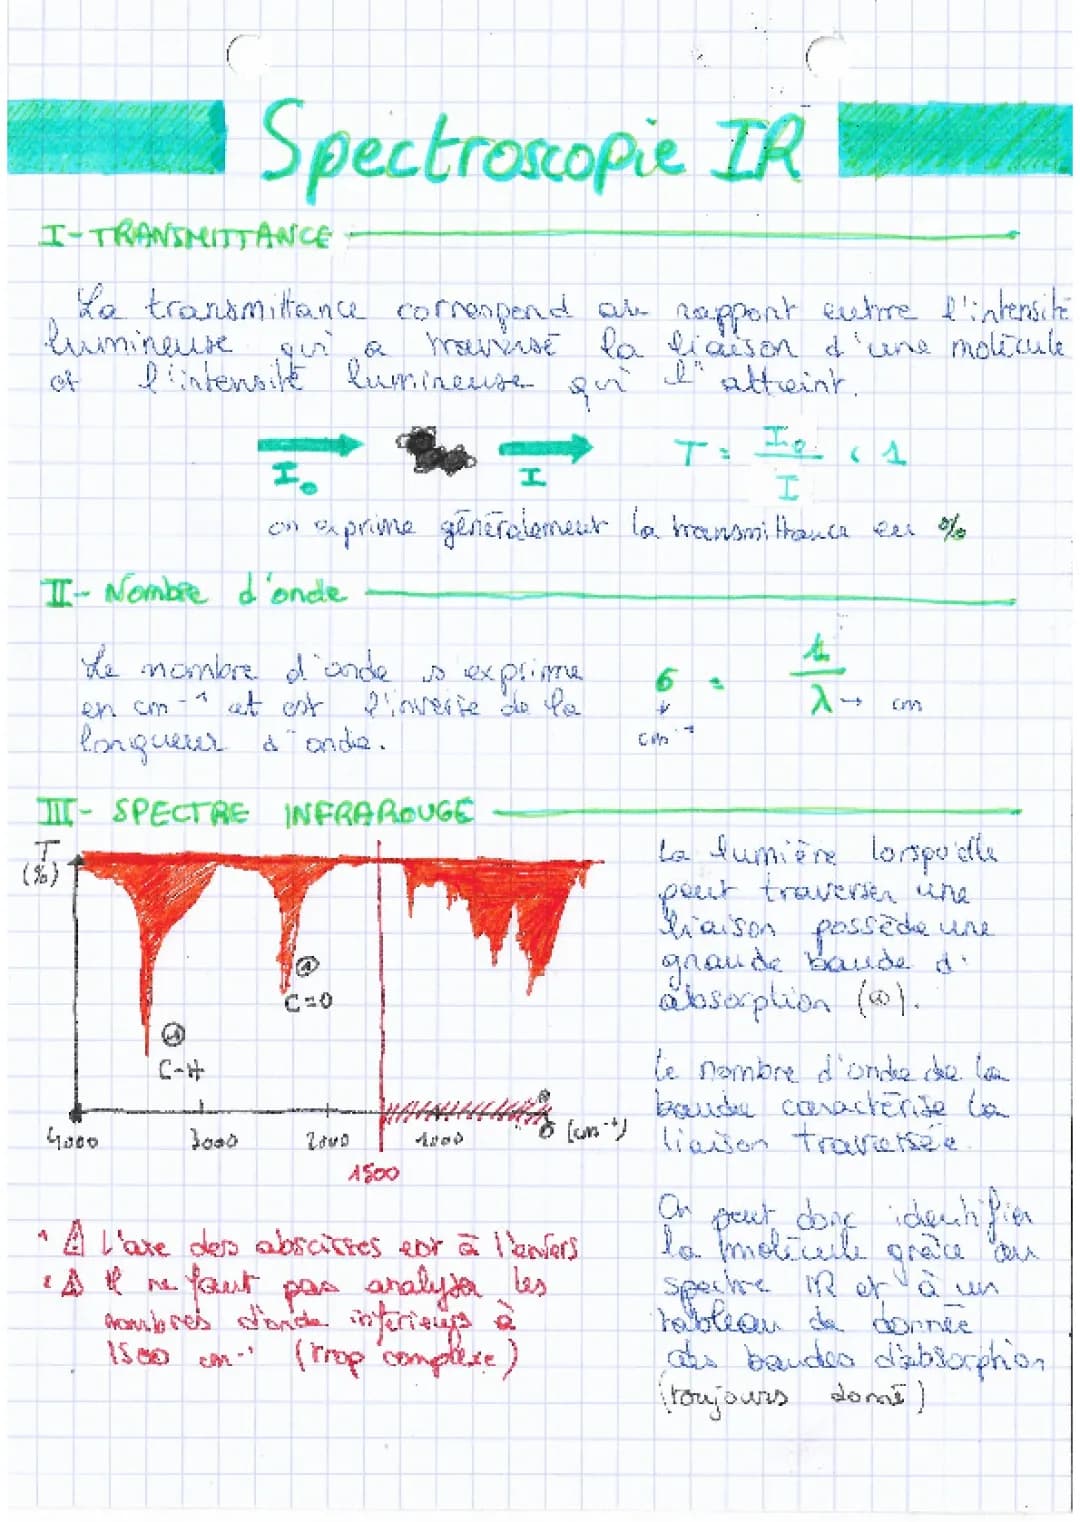 Spectroscopie IR
I-TRANSMITTANCE
La transmittance correspond au rapport entre l'intensité
lumineuse qui a traversé la liaison d'une molécule
et l'intensité lumineuse qui l'atteint.
I₀ I T = I₀/I < 1
on exprime généralement la transmittance en %
II- Nombre d'onde
Le nombre d'onde s'exprime
en cm-¹ et est l'inverse de la
longueur d'onde.
σ = 1/λ → cm
↓
cm-¹
III- SPECTRE INFRAROUGE
T
(%)
① C=O
① C-H
4000 3000 2000 1000 0 (cm-¹)
1500
¹ ⚠ L'axe des abscisses est à l'envers
² ⚠ Il ne faut pas analyser les
nombres d'onde inférieurs à
1500 cm-¹ (trop complexe)
La lumière lorsqu'elle
peut traverser une
liaison possède une
grande bande d'
absorption (①).
Le nombre d'onde de la
bande caractérise la
liaison traversée.
On peut donc identifier
la molécule grâce au
spectre IR et à un
tableau de donnée
des bandes d'absorption
(toujours donné)